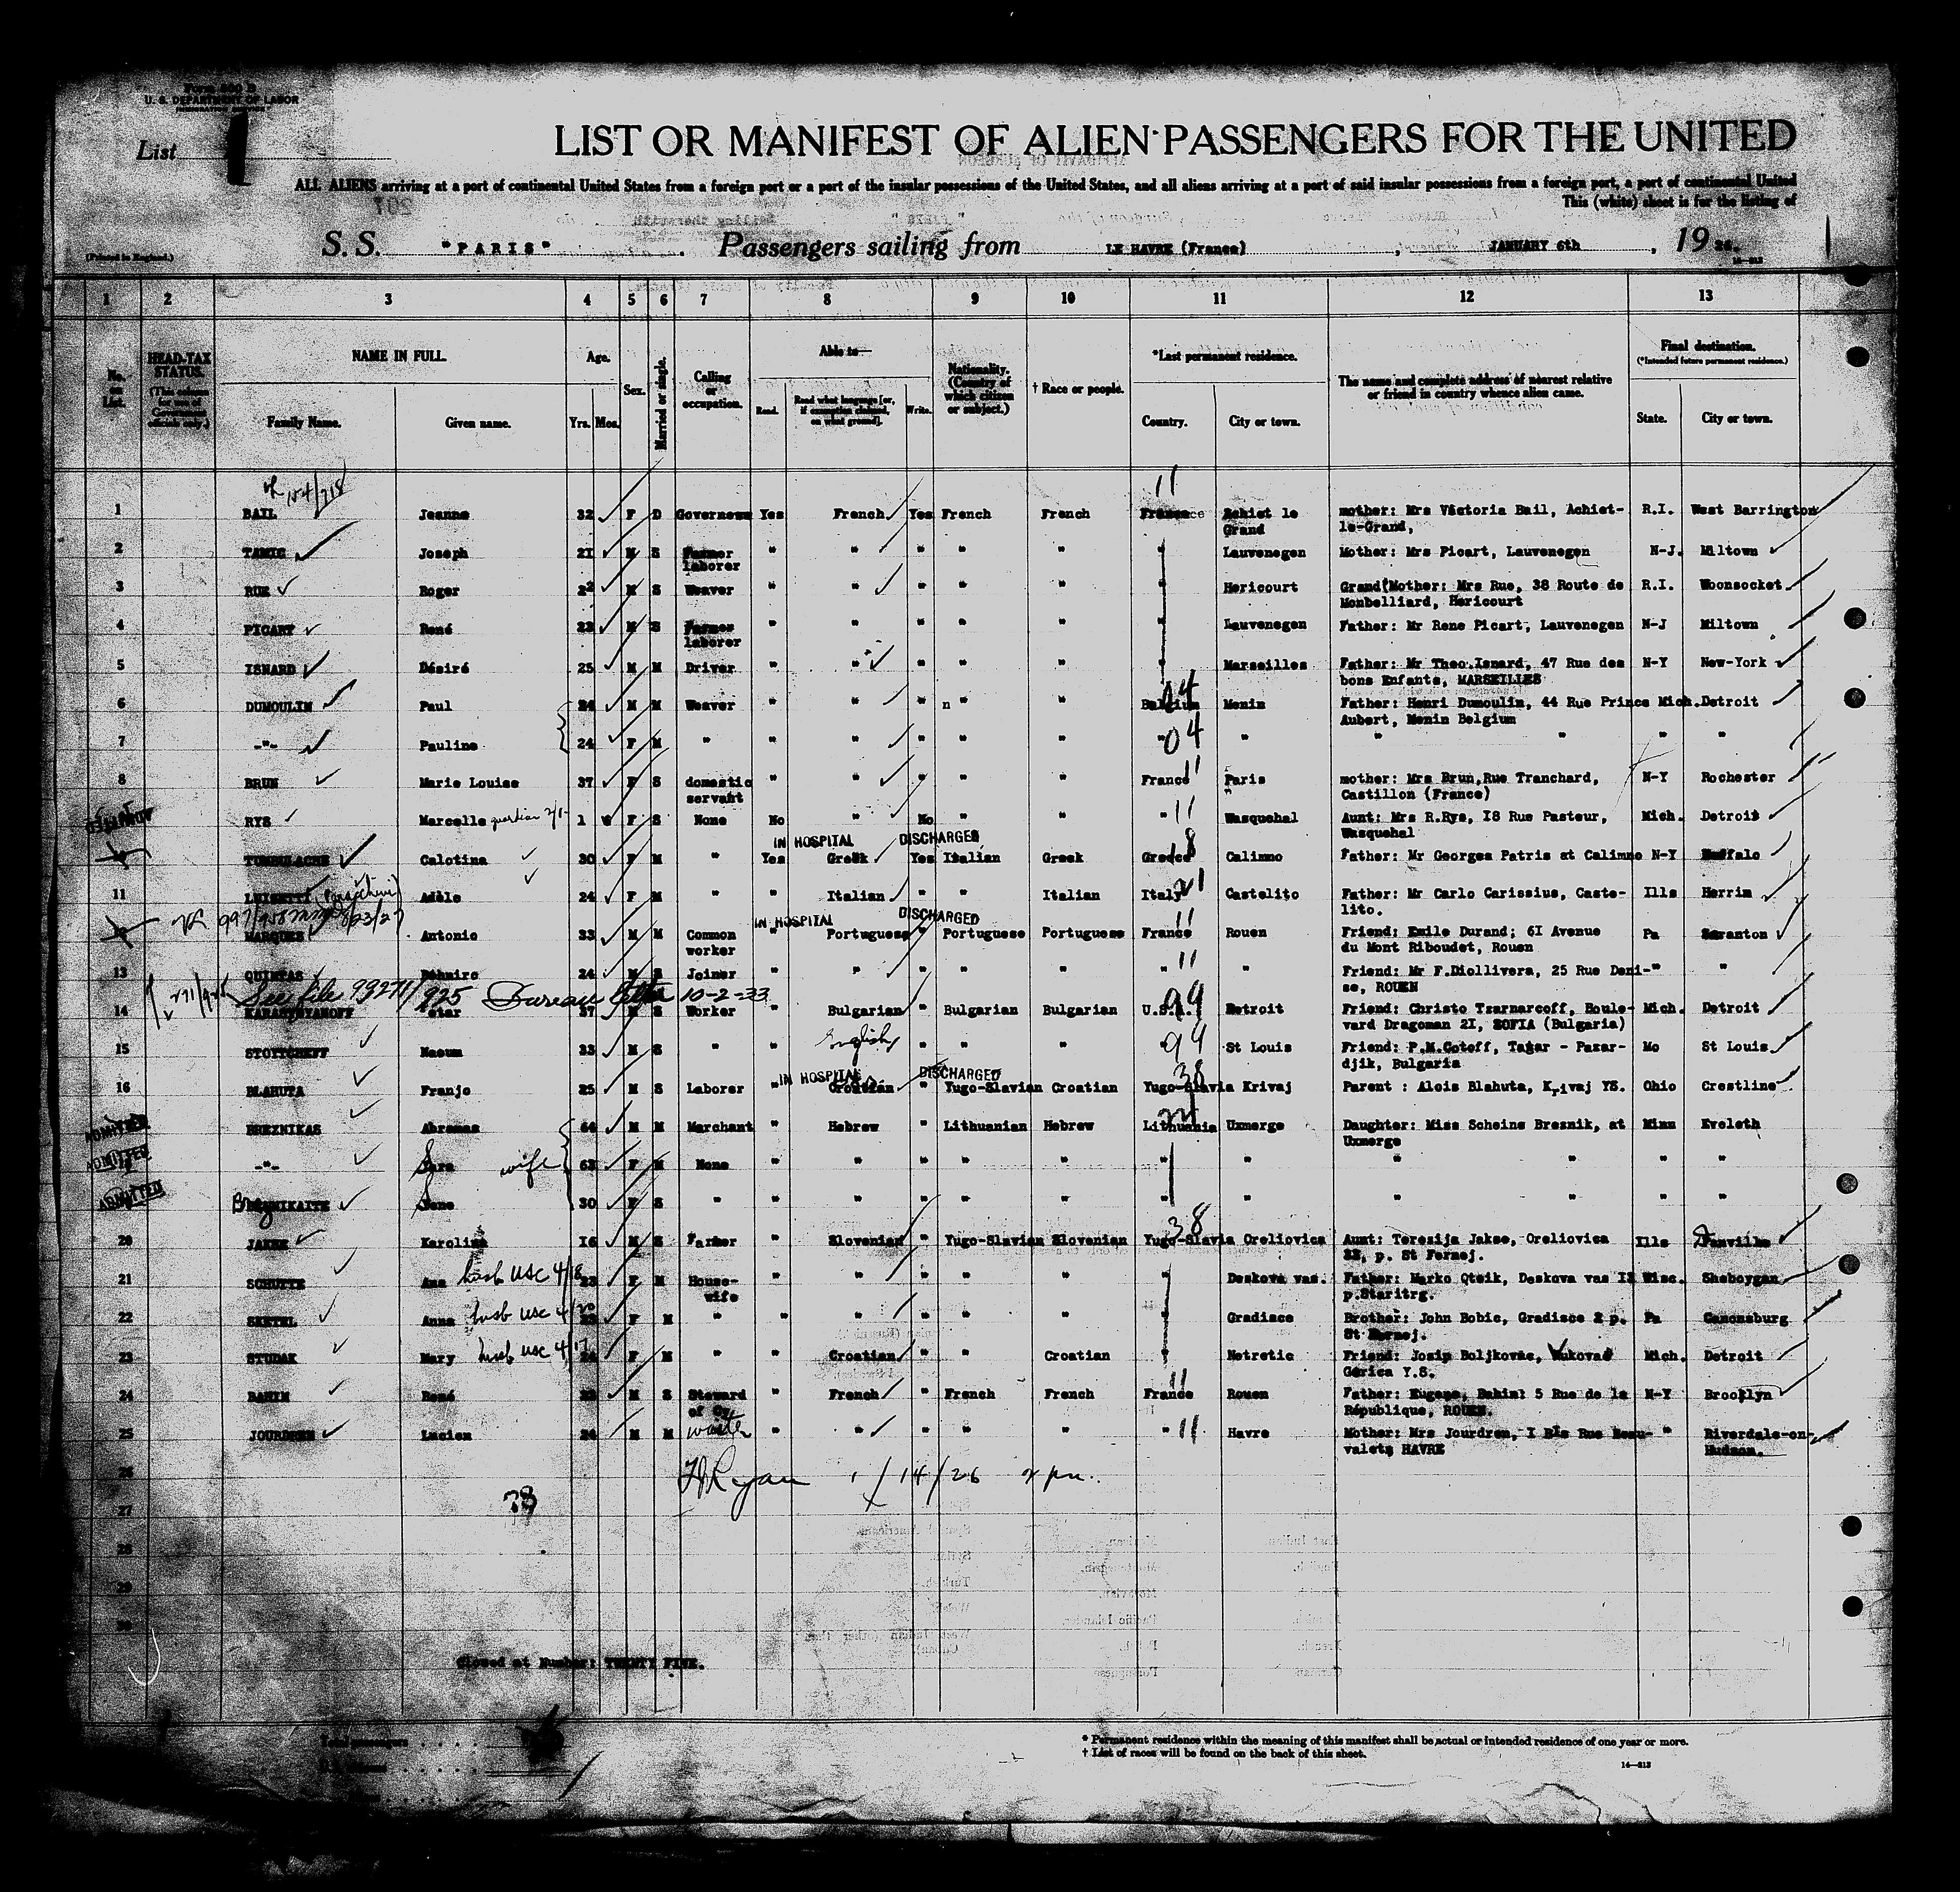 Form 500 B
U. S. DEPARTMENT OF LABOR
List 1
LIST OR MANIFEST OF ALIEN PASSENGERS FOR THE UNITED
ALL ALIENS arriving at a port of continental United States from a foreign port or a port of the insular possessions of the United States, and all aliens arriving at a port of said insular possessions from a foreign port, a port of continental United
This (white) sheet is for the listing of
(Printed in England.)
S. S. "PARIS" . Passengers sailing from LE HAVRE (France) , JANUARY 6th , 19 26.
1 2 3 4 5 6 7 8 9 10 11 12 13
No. on List. HEAD-TAX STATUS. (This column for use of Government officials only.) NAME IN FULL. Family Name. Given name. Age. Yrs. Mos. Sex. Married or single. Calling or occupation. Able to— Read. Read what language [or, if exemption claimed, on what ground]. Write. Nationality. (Country of which citizen or subject.) † Race or people. *Last permanent residence. Country. City or town. The name and complete address of nearest relative or friend in country whence alien came. Final destination. (*Intended future permanent residence.) State. City or town.
11
1 BAIL Jeanne 32 F D Governess Yes French Yes French French France Achiet le Grand mother: Mrs Victoria Bail, Achiet-le-Grand, R.I. West Barrington
2 TAMIC Joseph 21 M S Farmer laborer " " " " " " Lauvenegen Mother: Mrs Picart, Lauvenegen N-J. Miltown
3 RUE Roger 22 M S Weaver " " " " " " Hericourt Grand Mother: Mrs Rue, 38 Route de Monbelliard, Hericourt R.I. Woonsocket
4 PICART René 23 M S Farmer laborer " " " " " " Lauvenegen Father: Mr Rene Picart, Lauvenegen N-J Miltown
5 ISNARD Désiré 25 M M Driver " " " " " " Marseilles Father: Mr Theo.Isnard, 47 Rue des bons Enfants, MARSEILLES N-Y New-York
6 DUMOULIN Paul 24 M M Weaver " " " " " Belgium 04 Menin Father: Henri Dumoulin, 44 Rue Prince Aubert, Menin Belgium Mich. Detroit
7 -"- Pauline 24 F M " " " " " " " 04 " " " " "
8 BRUN Marie Louise 37 F S domestic servant " " " " " France 11 Paris mother: Mrs Brun,Rue Tranchard, Castillon (France) N-Y Rochester
RYS Marcelle guardian 1 6 F S None No " No " " " 11 Wasquehal Aunt: Mrs R.Rys, 18 Rue Pasteur, Wasquehal Mich. Detroit
IN HOSPITAL DISCHARGED
Calotina 30 F M " Yes Greek Yes Italian Greek Greece 18 Calimno Father: Mr Georges Patris at Calimno N-Y Buffalo
11 LUISETTI Adèle 24 F M " " Italian " " Italian Italy 21 Castelito Father: Mr Carlo Carissius, Castelito. Ills Herrin
IN HOSPITAL DISCHARGED
MARQUES Antonio 33 M M Common worker " Portuguese " Portuguese Portuguese France 11 Rouen Friend: Emile Durand; 61 Avenue du Mont Riboudet, Rouen Pa Scranton
13 QUINTAS 24 M S Joiner " " " " " " 11 " Friend: Mr F.Diollivera, 25 Rue Deni-se, ROUEN " "
See file 93271/925 Bureau letter 10-2-33
14 Petar 37 M S Worker " Bulgarian " Bulgarian Bulgarian U.S.A. 99 Detroit Friend: Christo Tzarnarcoff, Boule-vard Dragoman 21, SOFIA (Bulgaria) Mich. Detroit
15 STOITCHEFF Naoum 33 M S " " English " " " 99 St Louis Friend: P.M.Gotoff, Tatar - Pazar-djik, Bulgaria Mo St Louis
IN HOSPITAL DISCHARGED
16 BLAHUTA Franjo 25 M S Laborer " Croatian " Yugo-Slavian Croatian Yugo-Slavia 38 Krivaj Parent : Alois Blahuta, Krivaj YS. Ohio Crestline
ADMITTED BREZNIKAS Abromas 64 M M Marchant " Hebrew " Lithuanian Hebrew Lithuania Uxmerge Daughter: Miss Scheine Breznik, at Uxmerge Minn Eveleth
ADMITTED -"- Sara wife 63 F M None " " " " " " " " " " "
ADMITTED Sone 30 F S " " " " " " " " " " " "
20 JAKSE Karolina 16 M S Farmer " Slovenian " Yugo-Slavian Slovenian Yugo-Slavia 38 Oreliovica Aunt: Teresija Jakse, Oreliovica 22, p. St Fernej. Ills Danville
21 SCHUTTE Ana husb USC 4/18 23 F M House-wife " " " " " " Deskova vas. Father: Marko Qteik, Deskova vas 12 p.Staritrg. Wisc. Sheboygan
22 SKETEL Anna husb USC 4/20 F M " " " " " " " Gradisce Brother: John Bobic, Gradisce 2 p. St Bernej. Pa Canonsburg
23 STUDAK Mary husb USC 4/17 24 F M " " Croatian " " Croatian " Netretic Friend: Josip Boljkovac, Vukova Gorica Y.S. Mich. Detroit
24 BAHIN René M S Steward of Cy " French " French French France 11 Rouen Father: Eugene, Bahin: 5 Rue de la République, ROUEN. N-Y Brooklyn
25 JOURDREN Lucien 24 M M waiter " " " " " " 11 Havre Mother: Mrs Jourdren, 1 Bis Rue Beau-valets HAVRE " Riverdale-on-Hudson.
26 1/14/26 2 pm.
27
28
29
30
Closed at Number: TWENTY FIVE.
Total passengers . . . .
* Permanent residence within the meaning of this manifest shall be actual or intended residence of one year or more.
† List of races will be found on the back of this sheet.
14—313